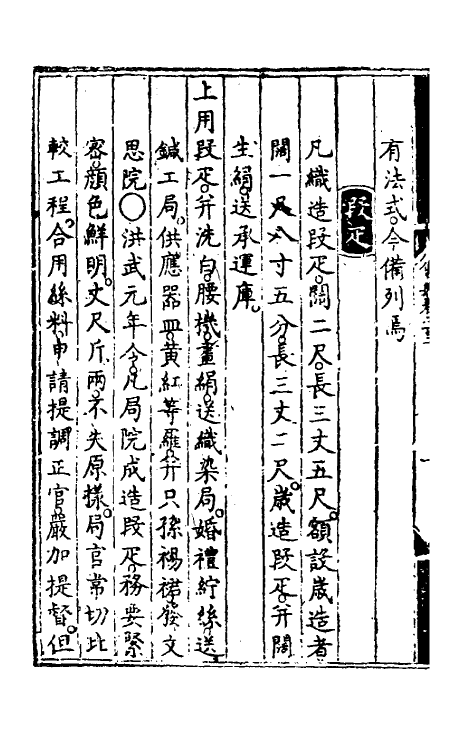 有法式。今備列焉
段疋
凡織造段疋。闊二尺。長三丈五尺。額設歲造者
闊一尺八寸五分。長三丈二尺。歲造段疋。并闊
生絹。送承運庫。
上用段疋。并洗白。腰機。畫絹。送織染局。婚禮紵絲。送
鍼工局。供應器皿。黃紅等羅。并只孫裼裙。發文
思院○洪武元年令。凡局院成造段疋。務要緊
密。顏色鮮明。丈尺斤兩。不失原樣。局官常切比
較工程。合用絲料。申請提調正官。嚴加提督。但